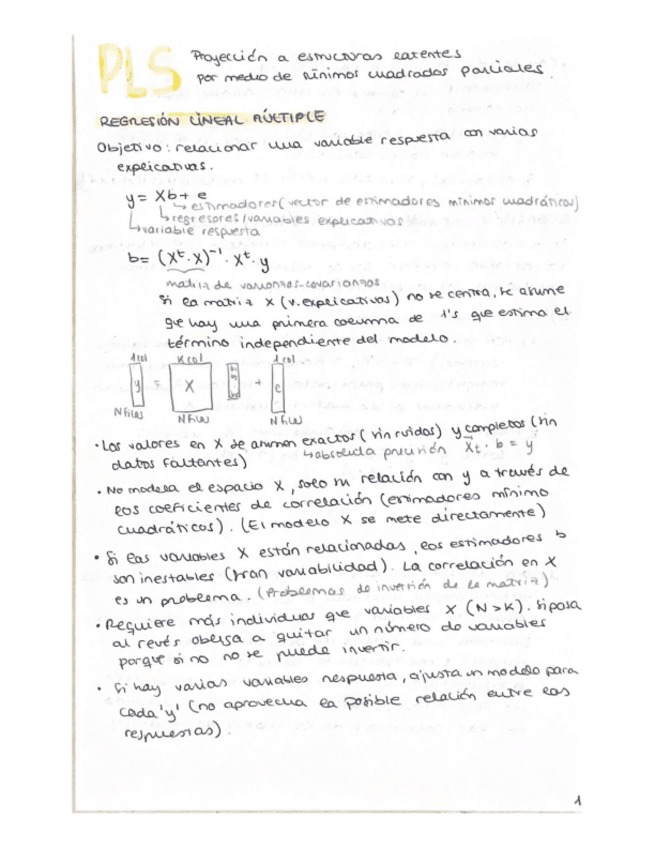 PLS
Proyección a estructuras latentes
por medio de mínimos cuadrados parciales.
REGRESIÓN LINEAL MÚLTIPLE
Objetivo: relacionar una variable respuesta con varias
explicativas.
y = Xb + e
↳ estimadores (vector de estimadores mínimos cuadráticos)
↳ regresores/variables explicativas
↳ variable respuesta
b = (Xᵗ·X)⁻¹·Xᵗ·y
matriz de varianzas-covarianzas
Si la matriz X (v. explicativas) no se centra, se asume
que hay una primera columna de 1's que estima el
término independiente del modelo.
1 col K col 1 col
y = X b + e
N filas N filas N filas
· Los valores en X se asumen exactos (sin ruidos) y completos (sin
datos faltantes) ↳ absoluta precisión Xₜ · b = y
· No modela el espacio X, solo su relación con y a través de
los coeficientes de correlación (estimadores mínimo
cuadráticos). (El modelo X se mete directamente)
· Si las variables X están relacionadas, los estimadores b
son inestables (gran variabilidad). La correlación en X
es un problema. (Problemas de inversión de la matriz)
· Requiere más individuos que variables X (N>K). Si pasa
al revés obliga a quitar un número de variables
porque si no no se puede invertir.
· Si hay varias variables respuesta, ajusta un modelo para
cada 'y' (no aprovecha la posible relación entre las
respuestas).
1